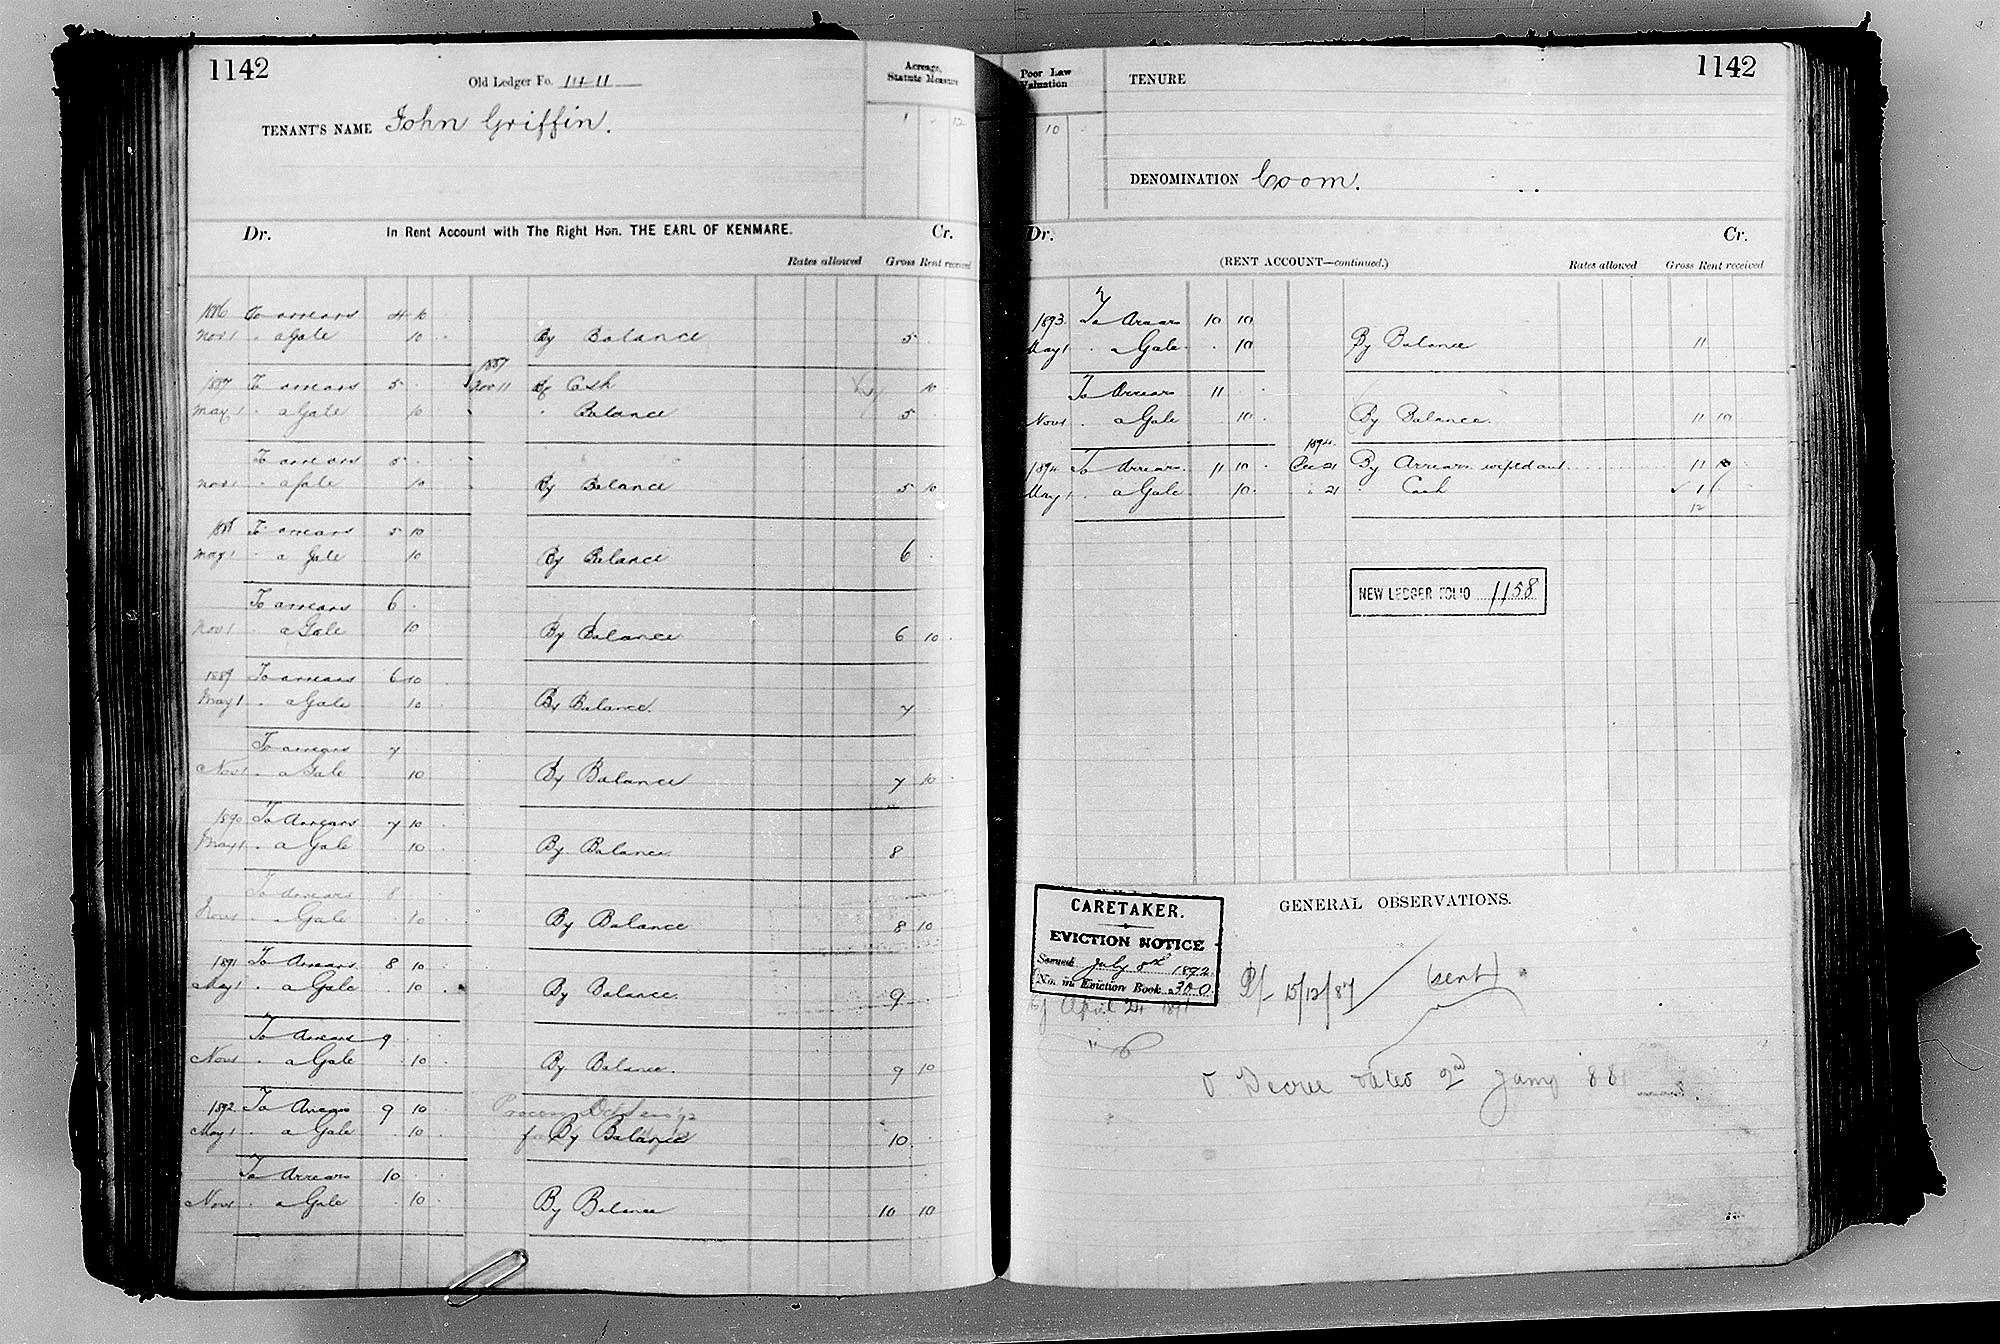 1142
Old Ledger Fo. 1411
Acreage, Statute Measure
TENANT'S NAME John Griffin.
1 - 12
Dr. In Rent Account with The Right Hon. THE EARL OF KENMARE. Cr.
Rates allowed Gross Rent received
1886 To arrears 4 10
Nov 1 " a Gale 10 By Balance 5
1887 To arrears 5 1887 Nov 11 By Cash 10
May 1 " a Gale 10 " Balance 5
To arrears 5
Nov 1 " a Gale 10 By Balance 5 10
1888 To arrears 5 10
May 1 " a Gale 10 By Balance 6
To arrears 6
Nov 1 " a Gale 10 By Balance 6 10
1889 To arrears 6 10
May 1 " a Gale 10 By Balance. 7
To arrears 7
Nov 1 " a Gale 10 By Balance 7 10
1890 To Arrears 7 10
May 1 " a Gale 10 By Balance 8
To Arrears 8
Nov 1 " a Gale 10 By Balance 8 10
1891 To Arrears 8 10
May 1 " a Gale 10 By Balance. 9
To Arrears 9
Nov 1 " a Gale 10 By Balance. 9 10
1892 To Arrears 9 10
May 1 " a Gale 10 By Balance 10
To Arrears 10
Nov 1 " a Gale 10 By Balance 10 10
1142
Poor Law Valuation
TENURE
10
DENOMINATION Coom.
Dr. Cr.
(RENT ACCOUNT—continued.) Rates allowed Gross Rent received
1893 To Arrears 10 10
May 1 " a Gale 10 By Balance 11
To Arrears 11
Nov 1 " a Gale 10 By Balance. 11 10
1894
1894 To Arrears 11 10 Dec 21 By Arrears 11 10
May 1 " a Gale 10 " 21 " Cash 1
12
NEW LEDGER FOLIO 1158
GENERAL OBSERVATIONS.
CARETAKER.
EVICTION NOTICE
Issued July 8th 1892
No. in Eviction Book 300
15/12/87 (sent)
April 21 1891
Decree dated 2nd Jany 88